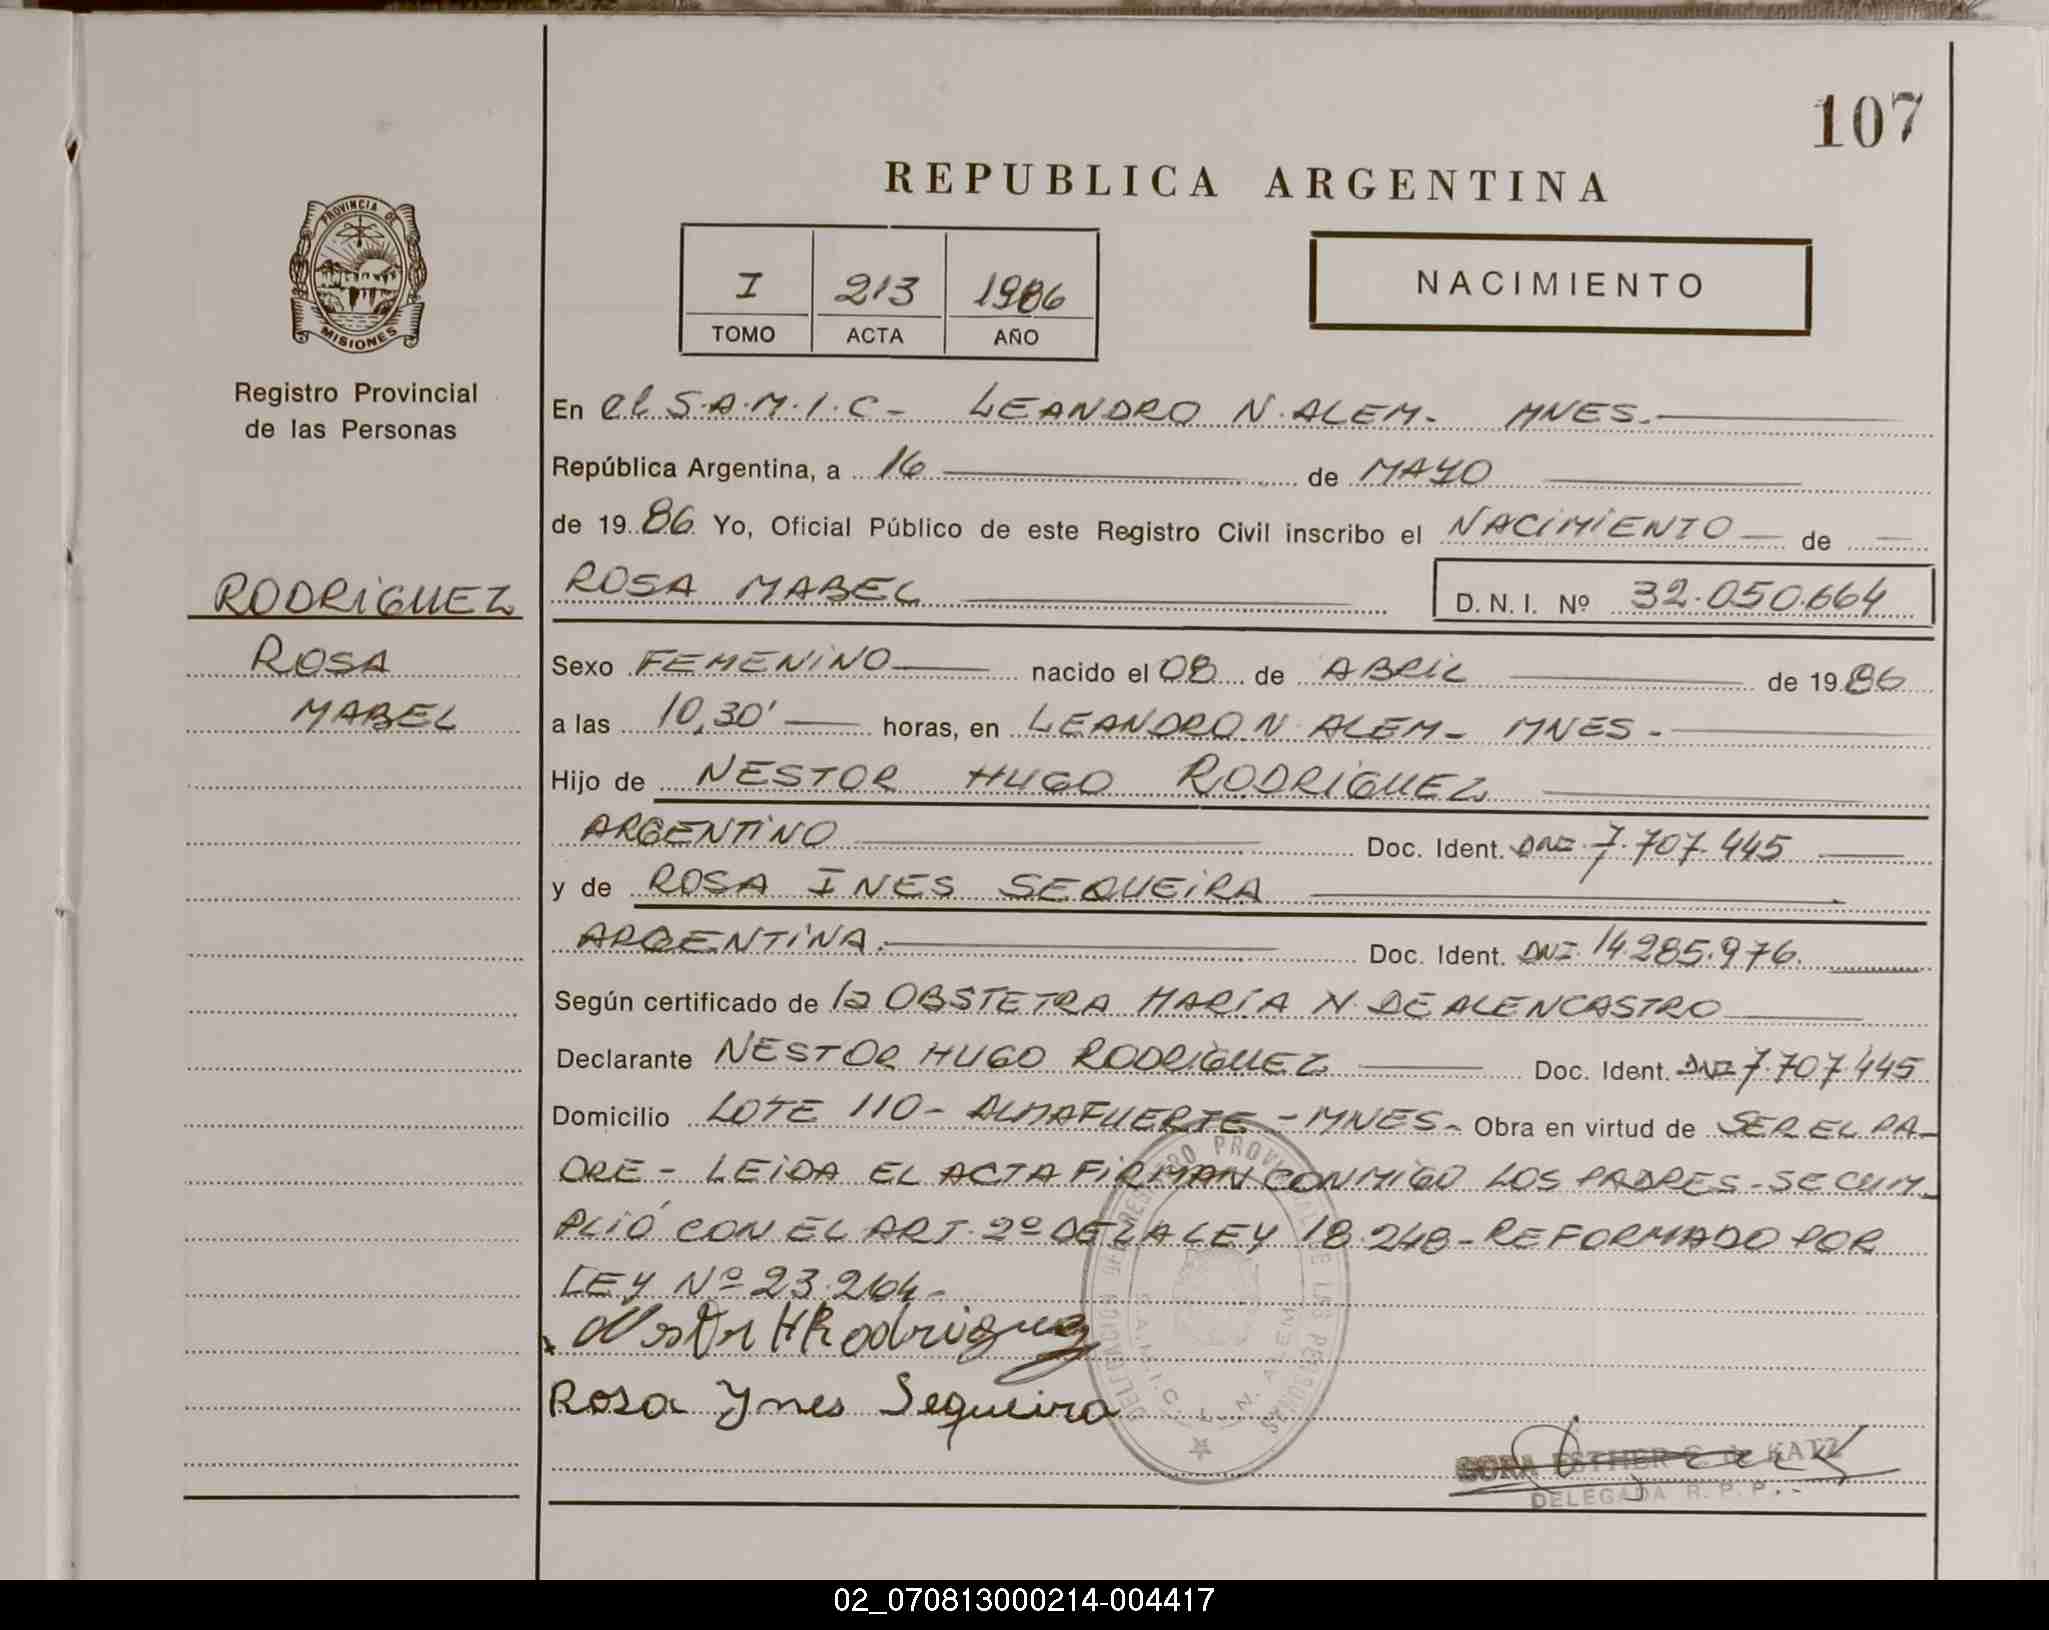 107
REPUBLICA ARGENTINA
PROVINCIA DE
MISIONES
Registro Provincial
de las Personas
I 213 1986
TOMO ACTA AÑO
NACIMIENTO
En el S.A.M.I.C- LEANDRO N. ALEM- MNES.
República Argentina, a 16 de MAYO
de 1986 Yo, Oficial Público de este Registro Civil inscribo el NACIMIENTO de
RODRIGUEZ
ROSA
MABEL
ROSA MABEL D. N. I. Nº 32.050.664
Sexo FEMENINO nacido el 08 de ABRIL de 1986
a las 10,30' horas, en LEANDRO N ALEM- MNES-
Hijo de NESTOR HUGO RODRIGUEZ
ARGENTINO Doc. Ident. DNI 7.707.445
y de ROSA INES SEQUEIRA
ARGENTINA. Doc. Ident. DNI 14.285.976.
Según certificado de la OBSTETRA MARIA N DE ALENCASTRO
Declarante NESTOR HUGO RODRIGUEZ Doc. Ident. DNI 7.707.445
Domicilio LOTE 110- ALMAFUERTE - MNES- Obra en virtud de SER EL PA-
DRE - LEIDA EL ACTA FIRMAN CONMIGO LOS PADRES - SE CUM-
PLIÓ CON EL ART. 2º DE LA LEY 18.248 - REFORMADO POR
LEY Nº 23.264-
Nestor H Rodriguez
Rosa Ynes Sequeira
DELEGACION DEL REGISTRO PROVINCIAL DE LAS PERSONAS
S.A.M.I.C. L. N. ALEM
ESTHER C. de KATZ
DELEGADA R. P. P.
02_070813000214-004417